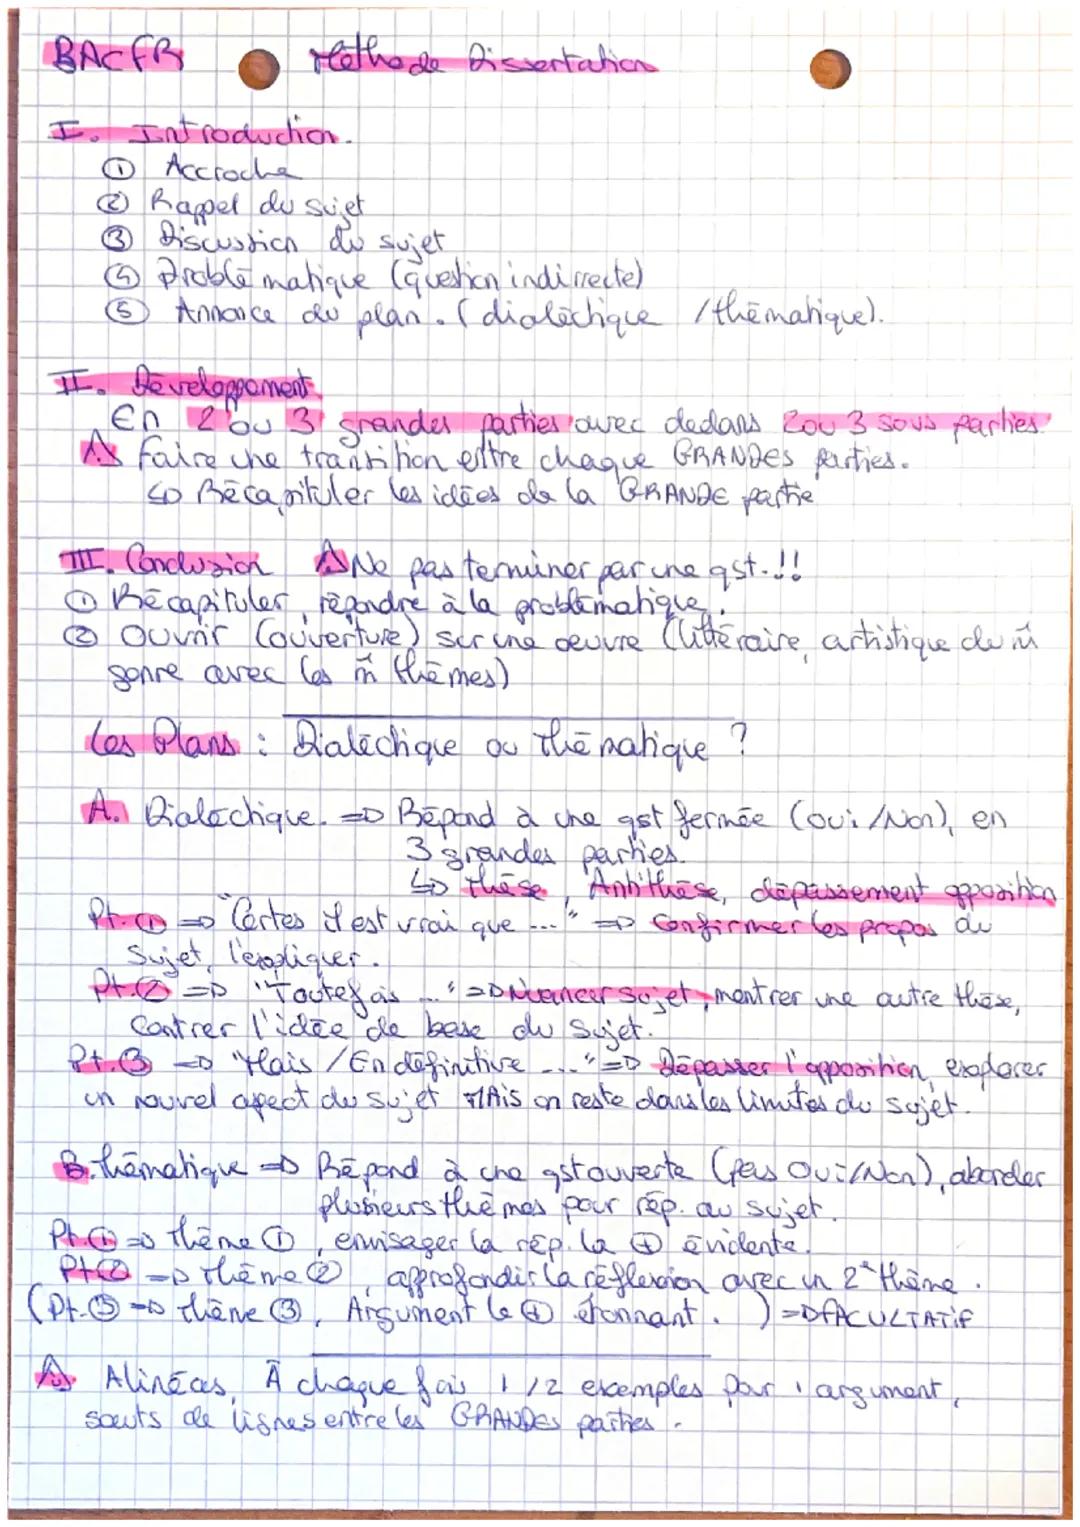 BAC FR Méthode Dissertation
I. Introduction.
① Accroche
② Rappel du sujet
③ Discussion du sujet
④ Problématique (question indirrecte)
⑤ Annonce du plan. (dialéctique /thématique).
II. Développement
En 2 ou 3 grandes parties avec dedans 2 ou 3 sous parties.
⚠ Faire une transition entre chaque GRANDES parties.
↳ Récapituler les idées de la GRANDE partie
III. Conclusion ⚠ Ne pas terminer par une qst.!!
① Récapituler, répondre à la problématique.
② Ouvrir (ouverture) sur une oeuvre (littéraire, artistique du m̂
genre avec les m̂ thèmes)
Les Plans : Dialéctique ou thématique ?
A. Dialéctique. => Répond à une qst fermée (oui/Non), en
3 grandes parties.
↳ thèse, Antithèse, dépassement opposition
Pt.① => "Certes il est vrai que ..." => Confirmer les propos du
Sujet, l'expliquer.
Pt.② => "Toutefois ..." => Nuancer sujet, montrer une autre thèse,
Contrer l'idée de base du Sujet.
Pt.③ => "Mais / En définitive ..." => Dépasser l'opposition, explorer
un nouvel aspect du sujet MAIS on reste dans les limites du sujet.
B. thématique => Répond à une qst ouverte (pas Oui/Non), aborder
plusieurs thèmes pour rép. au sujet.
Pt.① => thème ①, envisager la rép. la ⊕ évidente.
Pt② => thème ②, approfondir la réflexion avec un 2e thème.
(Pt.③ => thème ③, Argument le ⊕ étonnant. ) => FACULTATIF
⚠ Alinéas, À chaque fois 1/2 exemples pour 1 argument,
sauts de lignes entre les GRANDES parties.